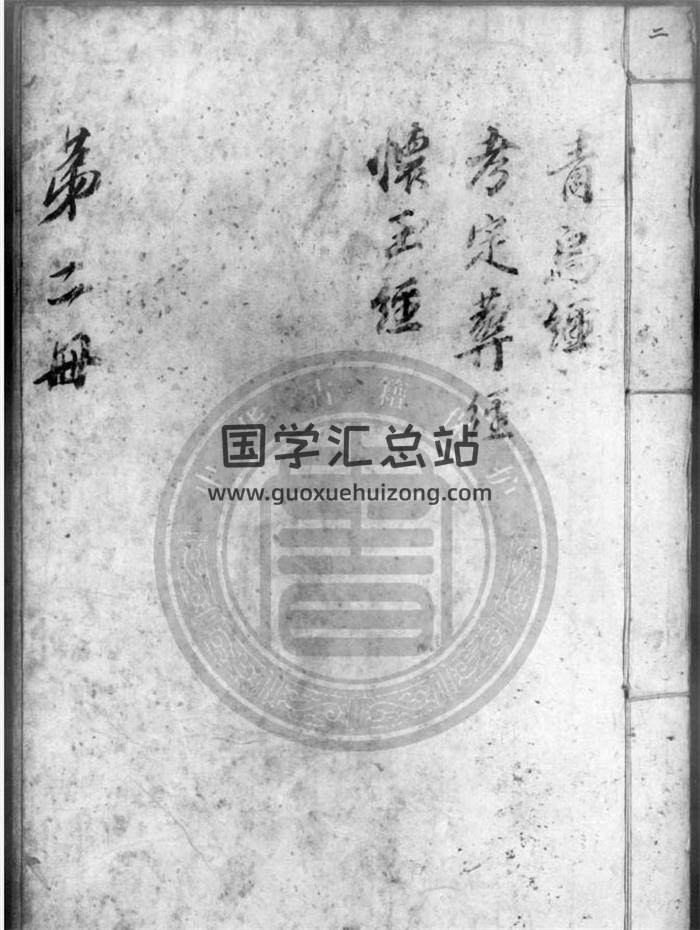 二
青烏經
考定葬經
懷玉經
第二冊
国学汇总站
www.guoxuehuizong.com